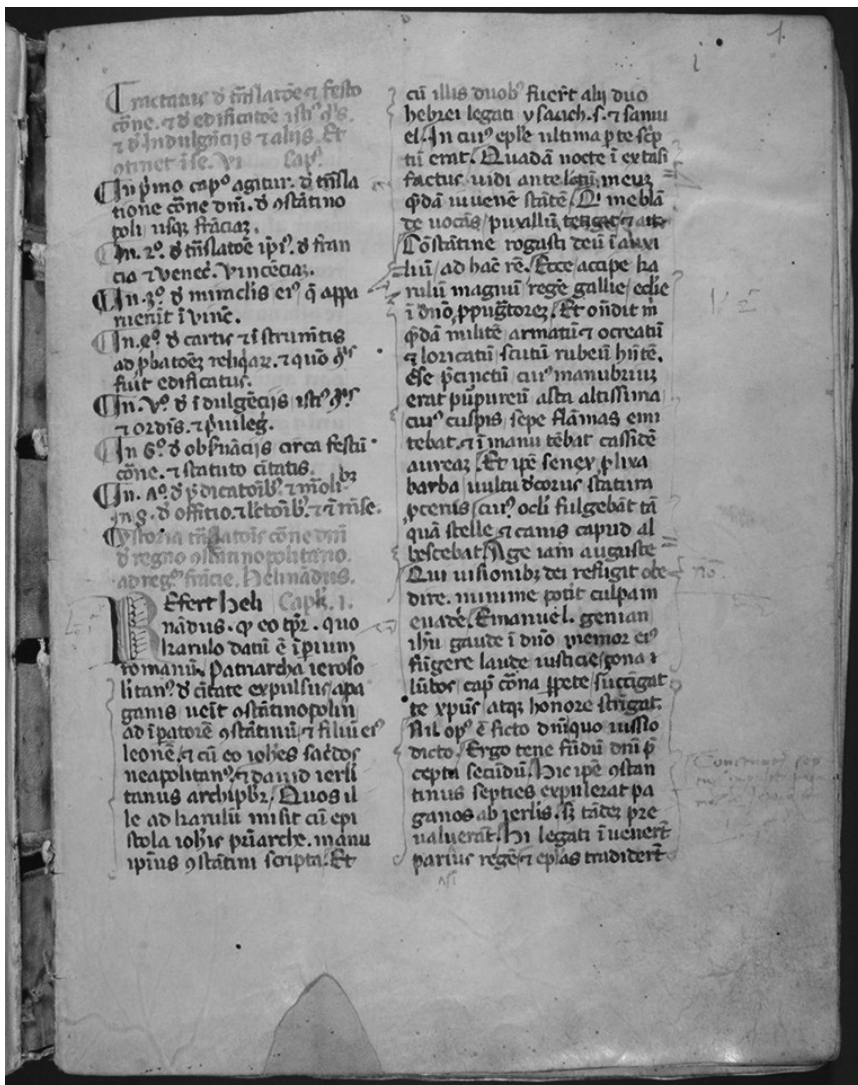 1.
i
Tractatus d̄ trāslatōe ⁊ festo
cōne. ⁊ d̄ edificatōe istiꝰ
⁊ d̄ Indulgēcijs ⁊ alijs. Et
ɔtinet ī se. Vi Capᵃ.
In p̄mo capᵒ agitur. d̄ trāsla
tione cōne dnī. d̄ ɔstātino
poli usqꝫ frāciaꝫ.
In. 2ᵒ. d̄ trāslatōe ipīꝰ. d̄ fran
cia ⁊ veneć. Vincēciaꝫ.
In. 3ᵒ. d̄ miraclis eiꝰ q̄ appa
ruerūt ī vinc̄.
In. 4ᵒ. d̄ cartis ⁊ īstrum̄tis
ad ꝓbatōeꝫ reliqaꝝ. ⁊ quō
fuit edificatus.
In. Vᵒ. d̄ īdulgēcijs istiꝰ
⁊ ordīs. ⁊ p̄uileḡ.
In 6ᵒ. d̄ obs̄uācijs circa festū
cōne. ⁊ statuto citatis.
In. ʌᵒ. d̄ p̄dicatoībꝰ. ⁊
In. 8. d̄ offitio. ⁊ lc̄toībꝰ. ⁊ ī mīse.
ystoria trāslatoīs cōne dnī
d̄ regno ɔstātinopolitano.
ad regē frācie. Helinādus.
REfert heli Capᵐ. 1.
nādus. ꝙ eo tp̄r. quo
karulo datū ē īpium
romanū. Patriarcha ieroso
litanꝰ d̄ cītate expulsus apa
ganis ueīt ɔstātinopolim
ad īpatorē ɔstātinū. ⁊ filiū eiꝰ
leonē. ⁊ cū eo ioh̄es sac̄dos
neapolitanꝰ. ⁊ dauid ierli
tanus archipb̄r. Quos il
le ad karulū misit cū epi
stola ioh̄is pr̄iarche. manu
ipīus ɔstātini scripta. Et
cū illis duobꝰ fuer̄t alij duo
hebrei legati ysaach. s. ⁊ samu
el. In cuiꝰ epl̄e ultima ꝑte sc̄p
tū erat. Quadā nocte ī extasi
factus uidi ante lectū meuꝫ
q̄dā iuuenē stātē. Qi me blā
de uocās, paullū tetigit ⁊ ait
Cōstātine rogasti deū ī auxi
liū, ad hāc rē. Ecce accipe ka
rulū magnū regē gallie, ecl̄ie
ī dnō ꝓpugtorez. Et ondit m̄
q̄dā militē armatū ⁊ ocreatū
⁊ loricatū scutū rubeū hn̄tē.
Ese p̄cinctū cuiꝰ manubriuꝫ
erat purpureū asta altissima
cuiꝰ cuspis sepe flāmas emi
tebat. ⁊ ī manu tēbat cassidē
aureaꝫ. Et ipē senex ꝓlixa
barba, uultu d̄corus, statura
ꝓcerus, cuiꝰ ocl̄i fulgebāt tā
quā stelle, ⁊ canis capud al
bescebat. Age iam auguste
Qui uisionibꝫ dei refugit obe
dire. minime potit culpam
euad̄e. Emanuel. genian
ih̄u gaude ī dnō memor eiꝰ
fūgere laude iusticie, ꝫona ⁊
lūbos, cap̄ cōna ꝑpete, succīgat
te xp̄us atqꝫ honore strīgat.
Nil opꝰ ē ficto dm̄quo iusso
dicto. Ergo tene fīdū dnī p̄
cepta secūdū. Hic ipē ɔstan
tinus septies expulerat pa
ganos ab ierlis. sꝫ tādeꝫ pre
ualuerāt. Hi legati īuenerūt
parius regē, ⁊ epl̄as tradiderūt